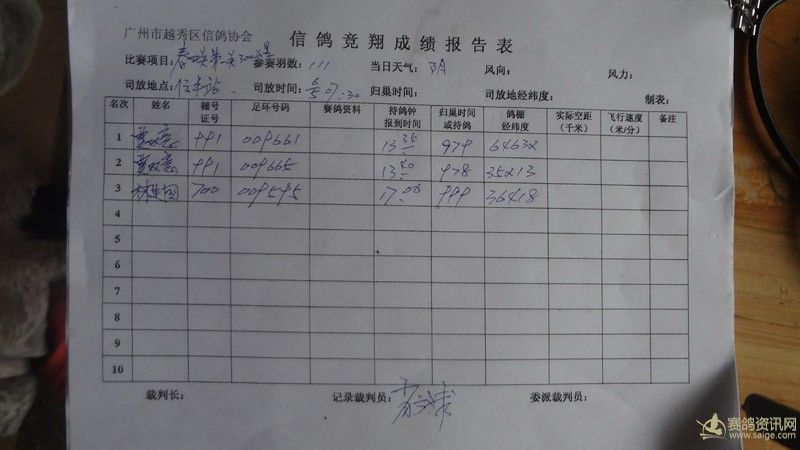 广州市越秀区信鸽协会
信鸽竞翔成绩报告表
比赛项目: 参赛羽数: 111 当日天气: 阴 风向: 风力:
司放地点: 司放时间: 6/5 07.30 归巢时间: 司放地经纬度: 制表:
名次 姓名 棚号证号 足环号码 赛鸽资料 持鸽钟报到时间 归巢时间或持鸽 鸽棚经纬度 实际空距(千米) 飞行速度(米/分) 备注
1 991 009661 13 35 979 64632
2 991 009665 13 40 978 35213
3 700 009595 17 06 999 36418
4
5
6
7
8
9
10
裁判长: 记录裁判员: 委派裁判员:
赛鸽资讯网
www.saige.com